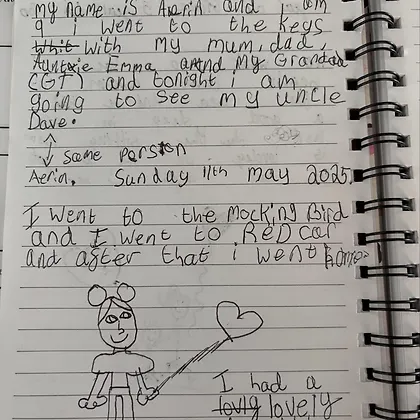 my name is Aerin and i am
9 i went to the keys
whit with my mum, dad,
Auntxie Emma and my Grandad
(GT) and tonight i am
going to see my uncle
Dave.
same person
Aerin. Sunday 11th may 2025
I went to the Mocking Bird
and I went to RED car
and after that i went home
I had a
lovly lovely